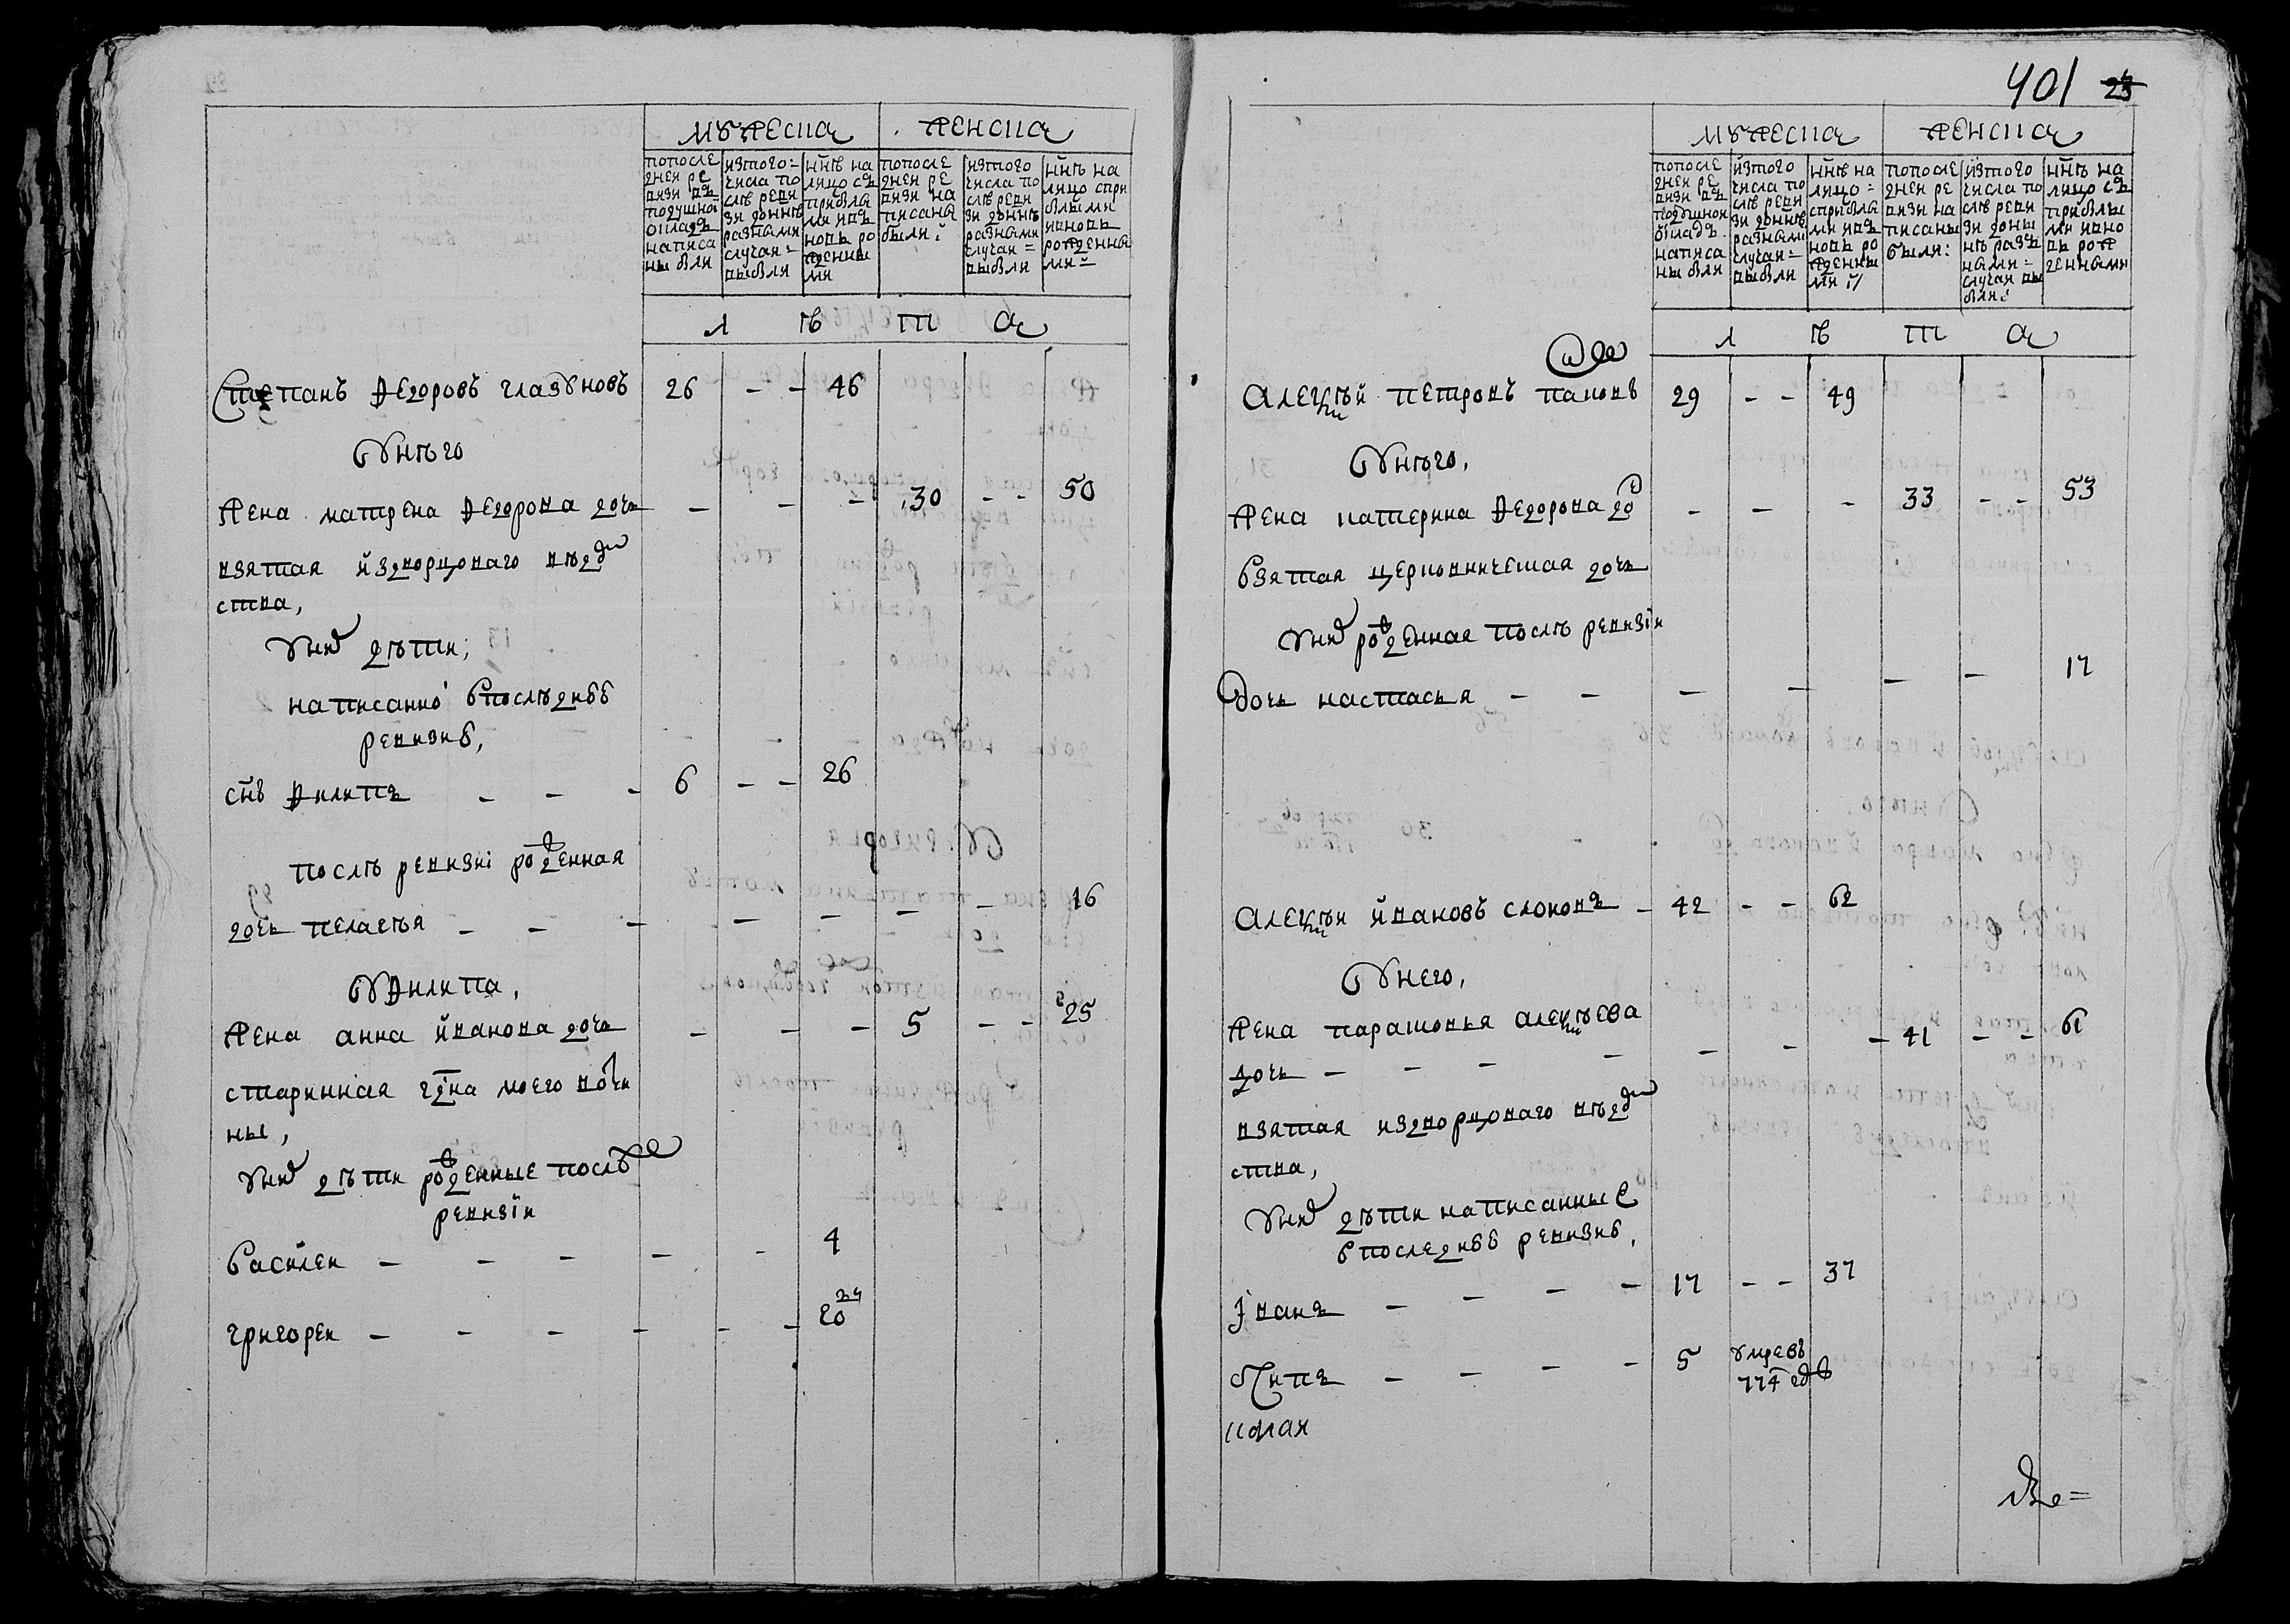 мужеска женска
попосле
дней ре
визи въ
подушной
окладъ
написа
ны были
изтого=
числа по
слѣ реви
зи доннѣ
разными
случаи=
выбли
ннѣ на
лицо съ
прибылы
ми ивъ
новь ро
жденны
ми
попосле
дней ре
визи на
писаны
были:
изтого
числа по
слѣ реви
зи доннѣ
разными
случаи=
выбыли
ннѣ на
лицо спри
былыми
ивновь
рожденны
ми=
л ѣ т а
Степанъ Федоровъ глазуновъ 26 - - 46
Унѣго
Жена матрена Федорова дочь - - - 30 - - 50
взятая издворцоваго вѣдом
ства,
Уних дѣти;
написанной впослѣдней
ревизиѣ,
снъ Филипъ - - - 6 - - 26
послѣ ревизиі рожденная
дочь пелагея - - - - - - - 16
УФилипа,
Жена анна иванова дочь - - - 5 - - 25
старинная гдна моего вотчи
ны,
Уних дѣти рожденные послѣ
ревизіи
Василеи - - - - - 4
григореи - - - - - - 20 нд
401 23
мужеска женска
попосле
дней ре
визи въ
подушной
окладъ
написа
ны были
изтого
числа по
слѣ реви
зи доннѣ
разными
случаи=
выбыли
ннѣ на
лицо=
сприбылы
ми ивъ
новь ро
жденны
ми //
попосле
дней ре
визи на
писаны
были:
изтого
числа по
слѣ реви
зи доны
нѣ разъ
ными=
случаи вы
были:
ннѣ на
лицо съ
прибылы
ми ивно
вь рож
денными
л ѣ т а
Алексѣй петровъ паповъ 29 - - 49
Унѣго,
Жена катерина Федорова до - - - 33 - - 53
Взятая церковническая дочь
Уних рожденная послѣ ревизіи
Дочь настасья - - - - - - 17
Алексѣи ивановъ слоковъ - 42 - - 62
Унего,
Жена парасковья алексѣева
дочь - - - - - - - 41 - - 61
взятая издворцоваго вѣдом
ства,
Уних дѣти написанные
впоследней ревизиѣ,
Іванъ - - - - 17 - - 37
- - - 5 умревъ
774 год